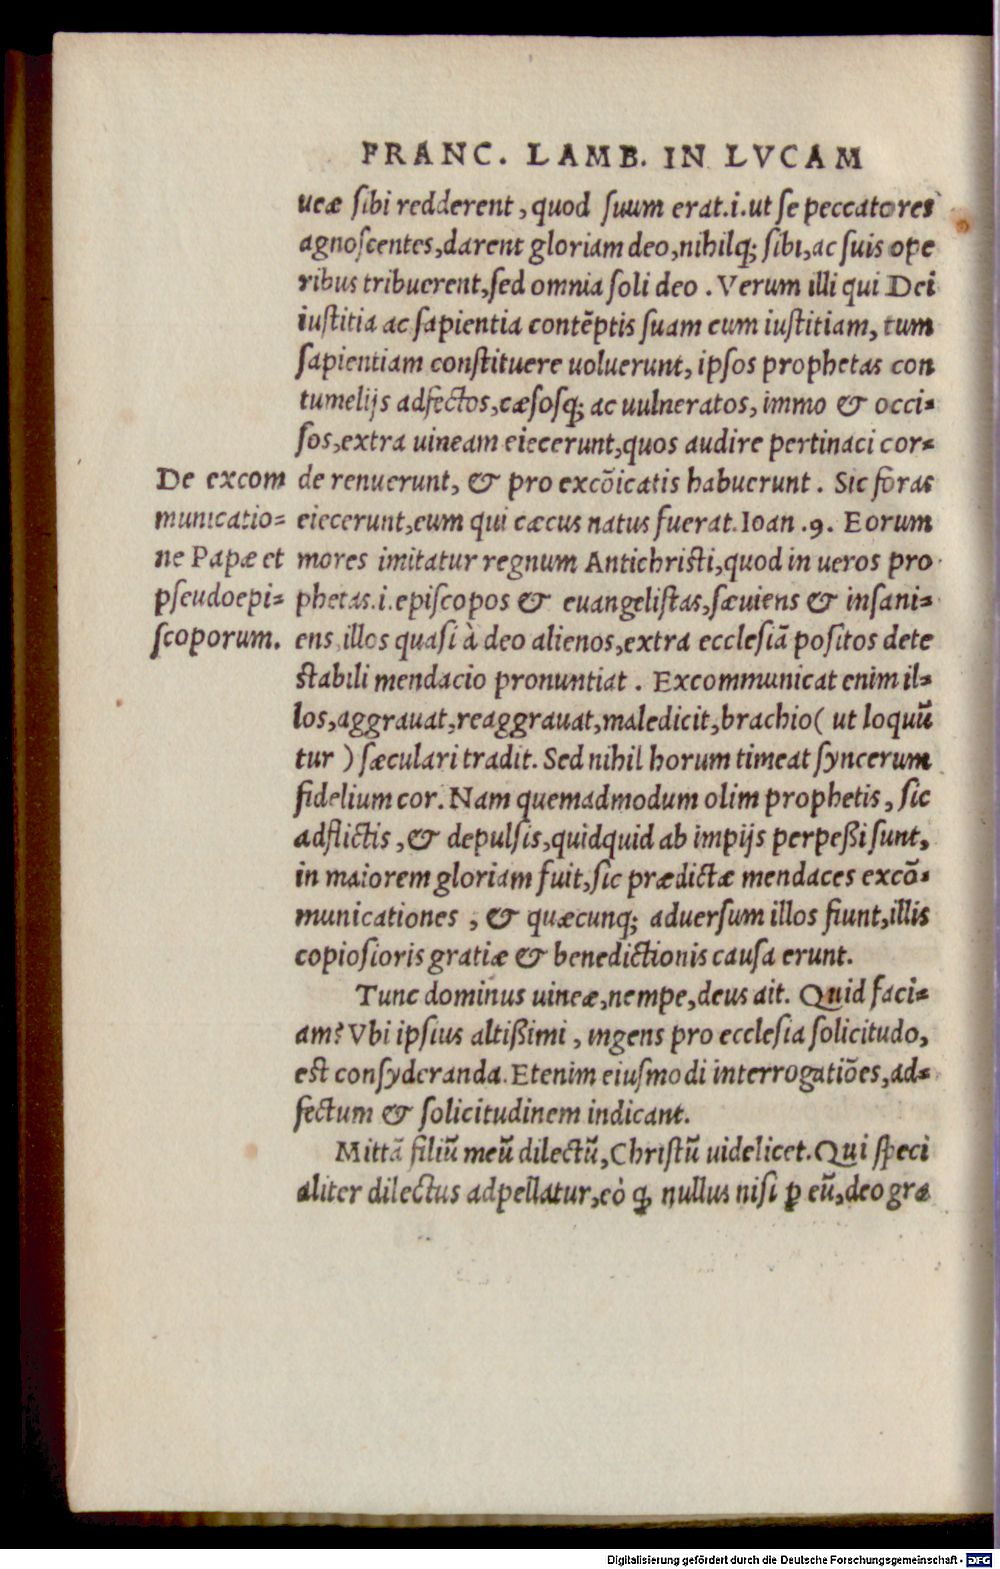 FRANC. LAMB. IN LVCAM
ueæ sibi redderent, quod suum erat.i.ut se peccatores
agnoscentes, darent gloriam deo, nihilq; sibi, ac suis ope
ribus tribuerent, sed omnia soli deo. Verum illi qui Dei
iustitia ac sapientia contẽptis suam cum iustitiam, tum
sapientiam constituere uoluerunt, ipsos prophetas con
tumelijs adfectos, cæsosq; ac uulneratos, immo & occi-
sos, extra uineam eiecerunt, quos audire pertinaci cor-
de renuerunt, & pro excõicatis habuerunt. Sic foras
eiecerunt, eum qui cæcus natus fuerat. Ioan.9. Eorum
mores imitatur regnum Antichristi, quod in ueros pro
phetas.i.episcopos & euangelistas, sæuiens & insani-
ens, illos quasi à deo alienos, extra ecclesiã positos dete
stabili mendacio pronuntiat. Excommunicat enim il-
los, aggrauat, reaggrauat, maledicit, brachio (ut loquũ
tur) sæculari tradit. Sed nihil horum timeat syncerum
fidelium cor. Nam quemadmodum olim prophetis, sic
adflictis, & depulsis, quidquid ab impijs perpeßi sunt,
in maiorem gloriam fuit, sic prædictæ mendaces excõ-
municationes, & quæcunq; aduersum illos fiunt, illis
copiosioris gratiæ & benedictionis causa erunt.
Tunc dominus uineæ, nempe, deus ait. Quid faci-
am? Vbi ipsius altißimi, ingens pro ecclesia solicitudo,
est consyderanda. Etenim eiusmodi interrogatiões, ad-
fectum & solicitudinem indicant.
Mittã filiũ meũ dilectũ, Christũ uidelicet. Qui speci
aliter dilectus adpellatur, eò ꝙ nullus nisi ꝑ eũ, deo gra
De excom
municatio-
ne Papæ et
pseudoepi-
scoporum.
Digitalisierung gefördert durch die Deutsche Forschungsgemeinschaft - DFG